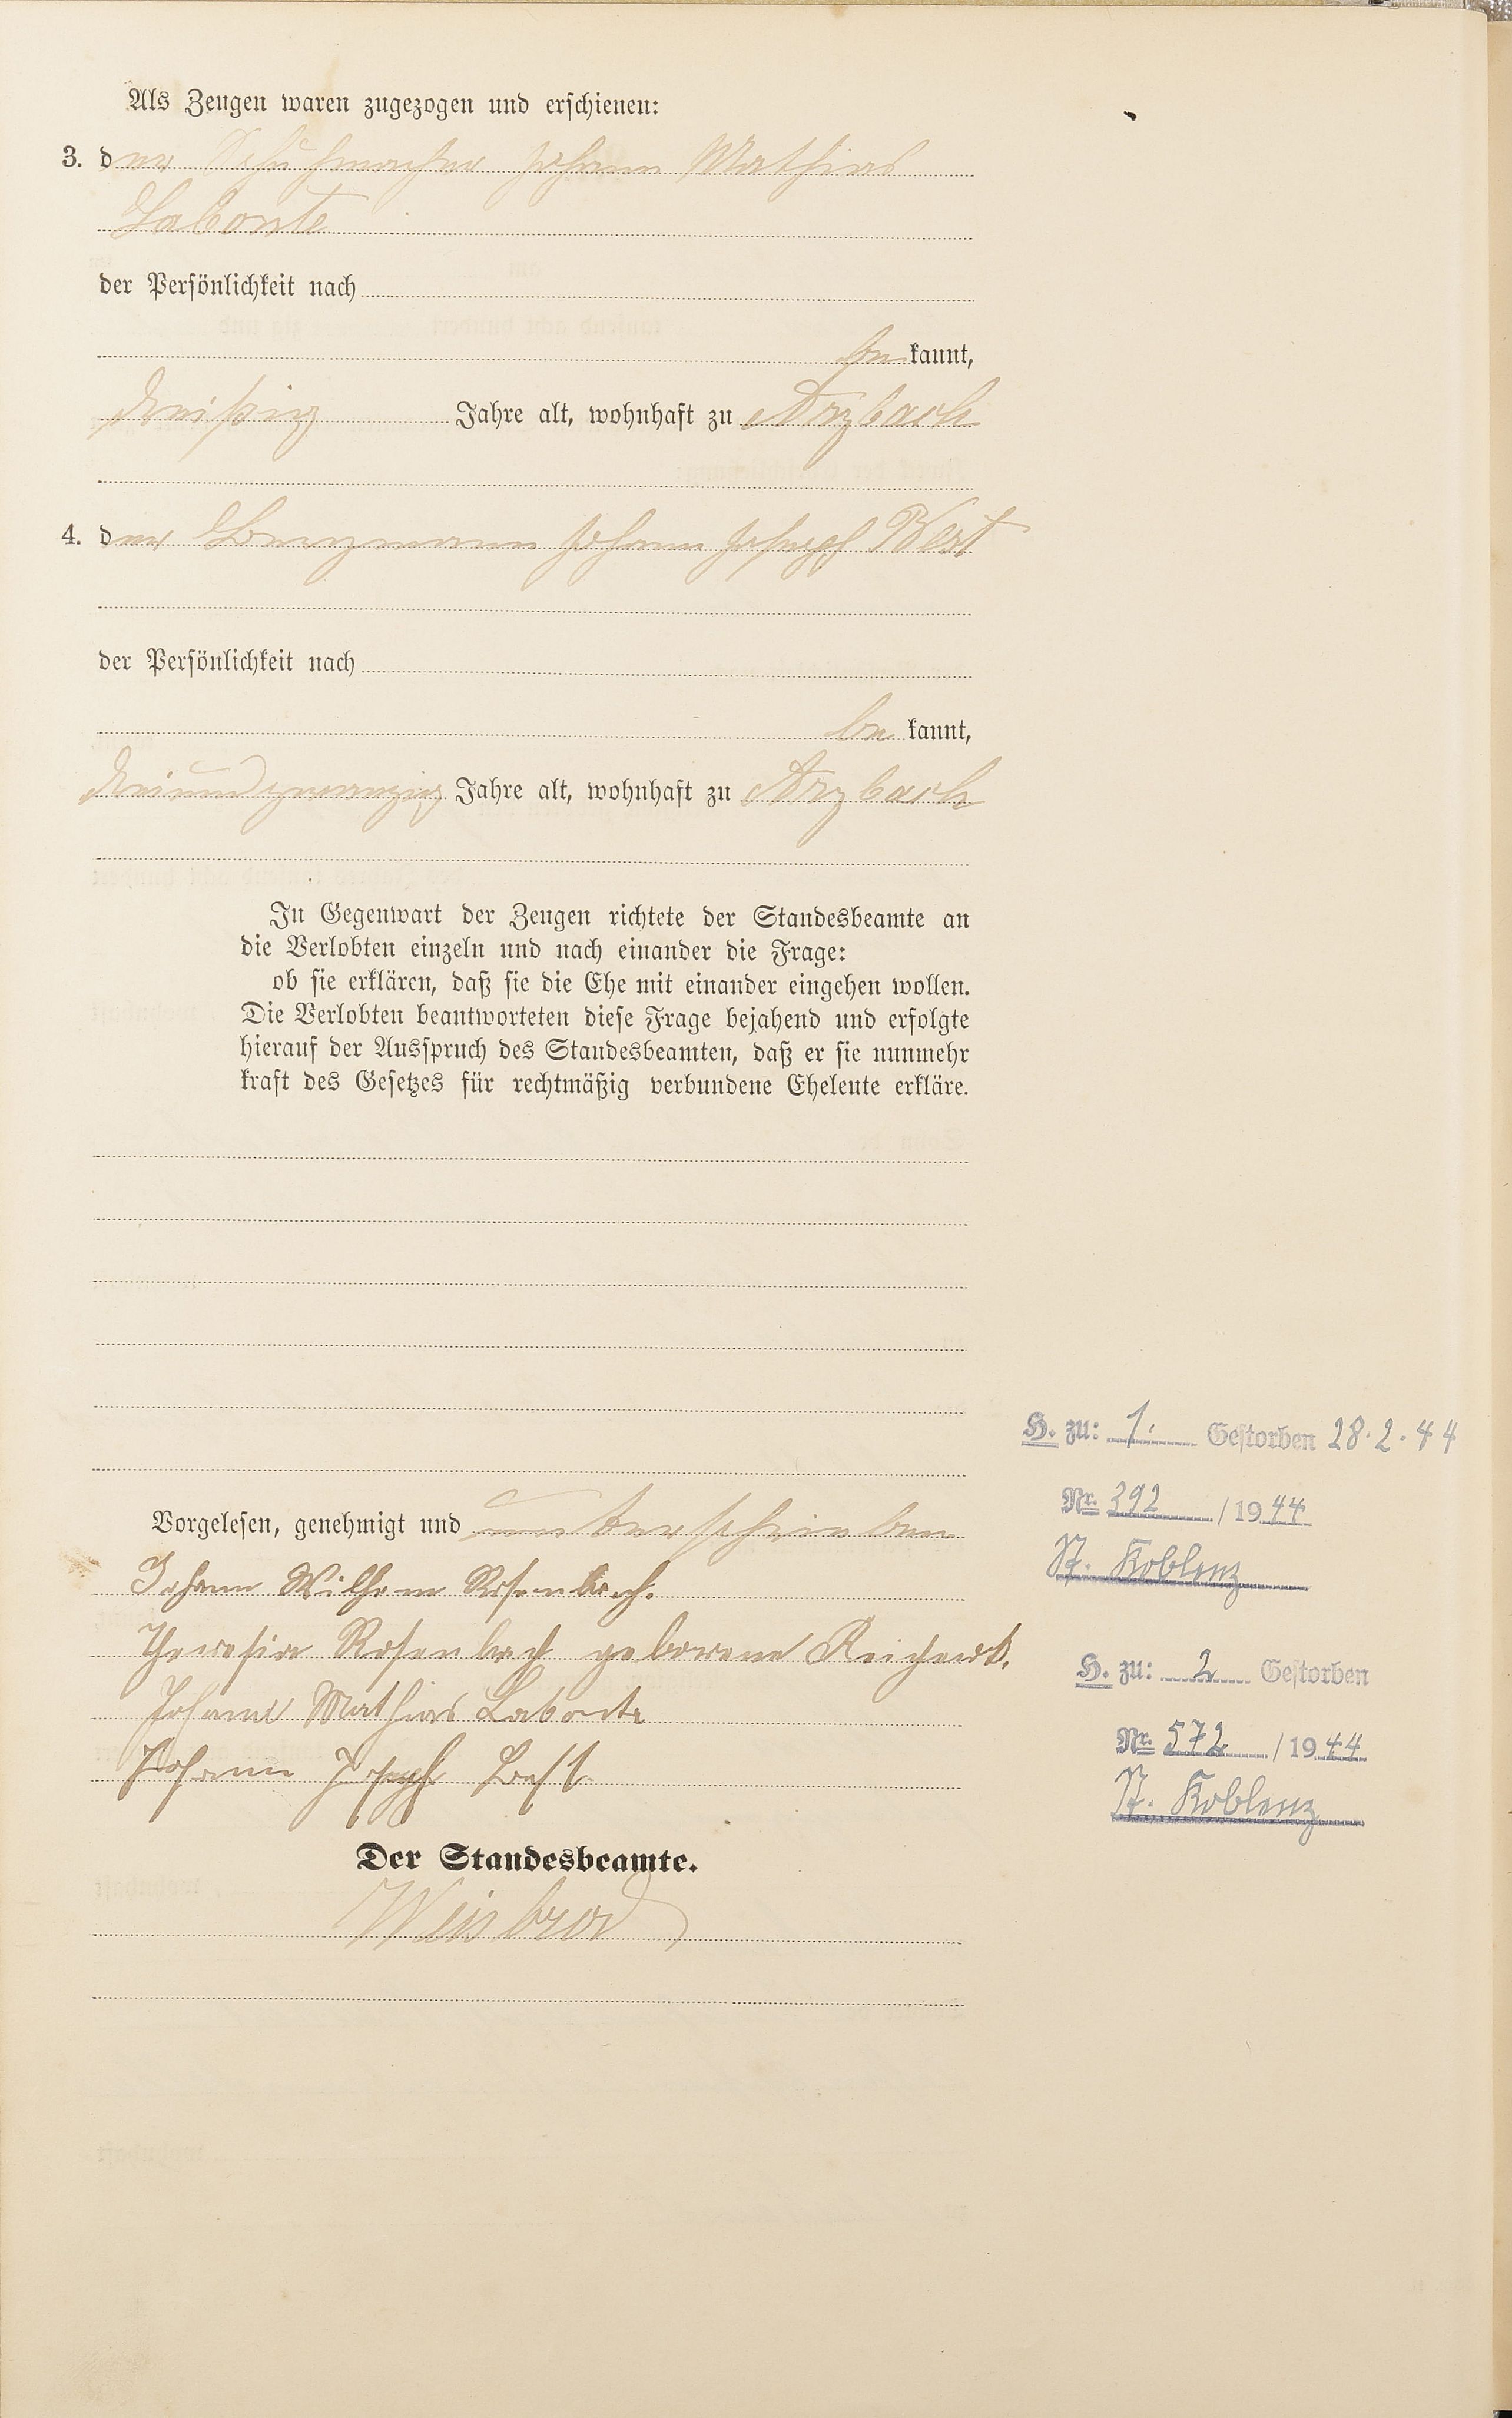 Als Zeugen waren zugezogen und erschienen:
3. der Schuhmacher Johann Mathias
Labonte
der Persönlichkeit nach
bekannt,
dreißig Jahre alt, wohnhaft zu Arzbach
4. der Bergmann Johann Joseph Best
der Persönlichkeit nach
be kannt,
dreiundzwanzig Jahre alt, wohnhaft zu Arzbach
In Gegenwart der Zeugen richtete der Standesbeamte an
die Verlobten einzeln und nach einander die Frage:
ob sie erklären, daß sie die Ehe mit einander eingehen wollen.
Die Verlobten beantworteten diese Frage bejahend und erfolgte
hierauf der Ausspruch des Standesbeamten, daß er sie nunmehr
kraft des Gesetzes für rechtmäßig verbundene Eheleute erkläre.
Vorgelesen, genehmigt und unterschrieben
Johann Wilhem Rosenbach.
Theresia Rosenbach geborene Reichardt.
Johann Mathias Labonte
Johann Joseph Best
Der Standesbeamte.
Weisbrod
H. zu: 1. Gestorben 28.2.44
Nr. 392 / 1944
St. Koblenz
H. zu: 2 Gestorben
Nr. 572 / 1944
St. Koblenz